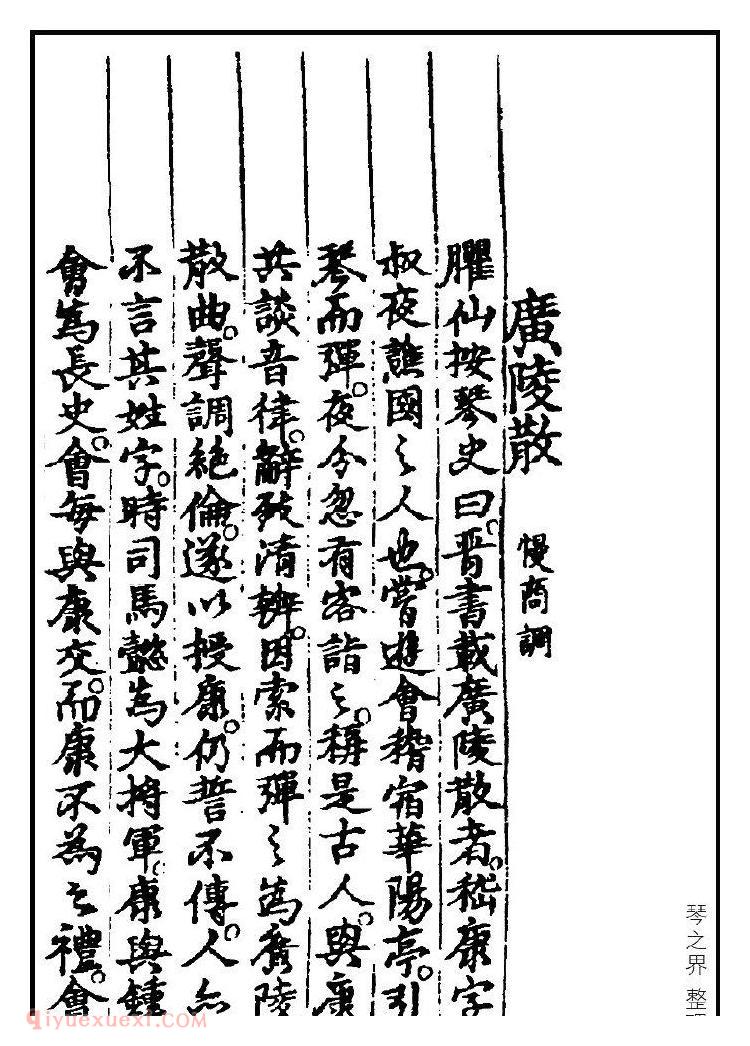 廣陵散 慢商調
臞仙按琴史曰。晉書載廣陵散者。嵇康字
叔夜譙國之人也。嘗遊會稽宿華陽亭。引
琴而彈。夜分忽有客詣之。稱是古人。與康
共談音律。辭致清辨。因索而彈之為廣陵
散曲。聲調絕倫。遂以授康。仍誓不傳。人亦
不言其姓字。時司馬懿為大將軍。康與鍾
會為長史。會每與康交。而康不為之禮。會
琴之界 整理
qiyuexuexi.com